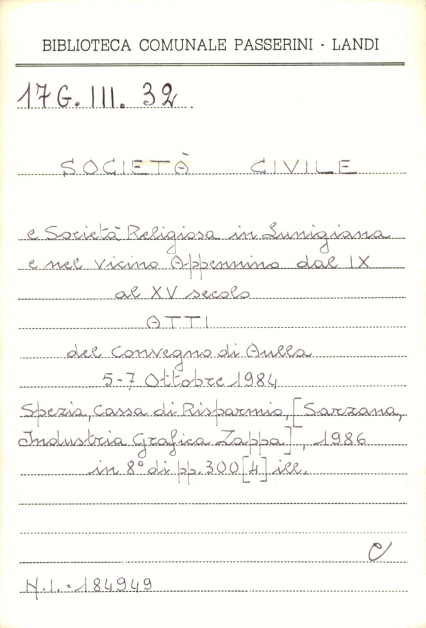 BIBLIOTECA COMUNALE PASSERINI - LANDI
17G. III. 32
SOCIETÀ CIVILE
e Società Religiosa in Lunigiana
e nel vicino Appennino dal IX
al XV secolo
ATTI
del Convegno di Aulla
5-7 Ottobre 1984
Spezia, Cassa di Risparmio, [Sarzana,
Industria Grafica Zappa], 1986
in 8° di pp. 300 [4] ill.
C
N.I. = 184949